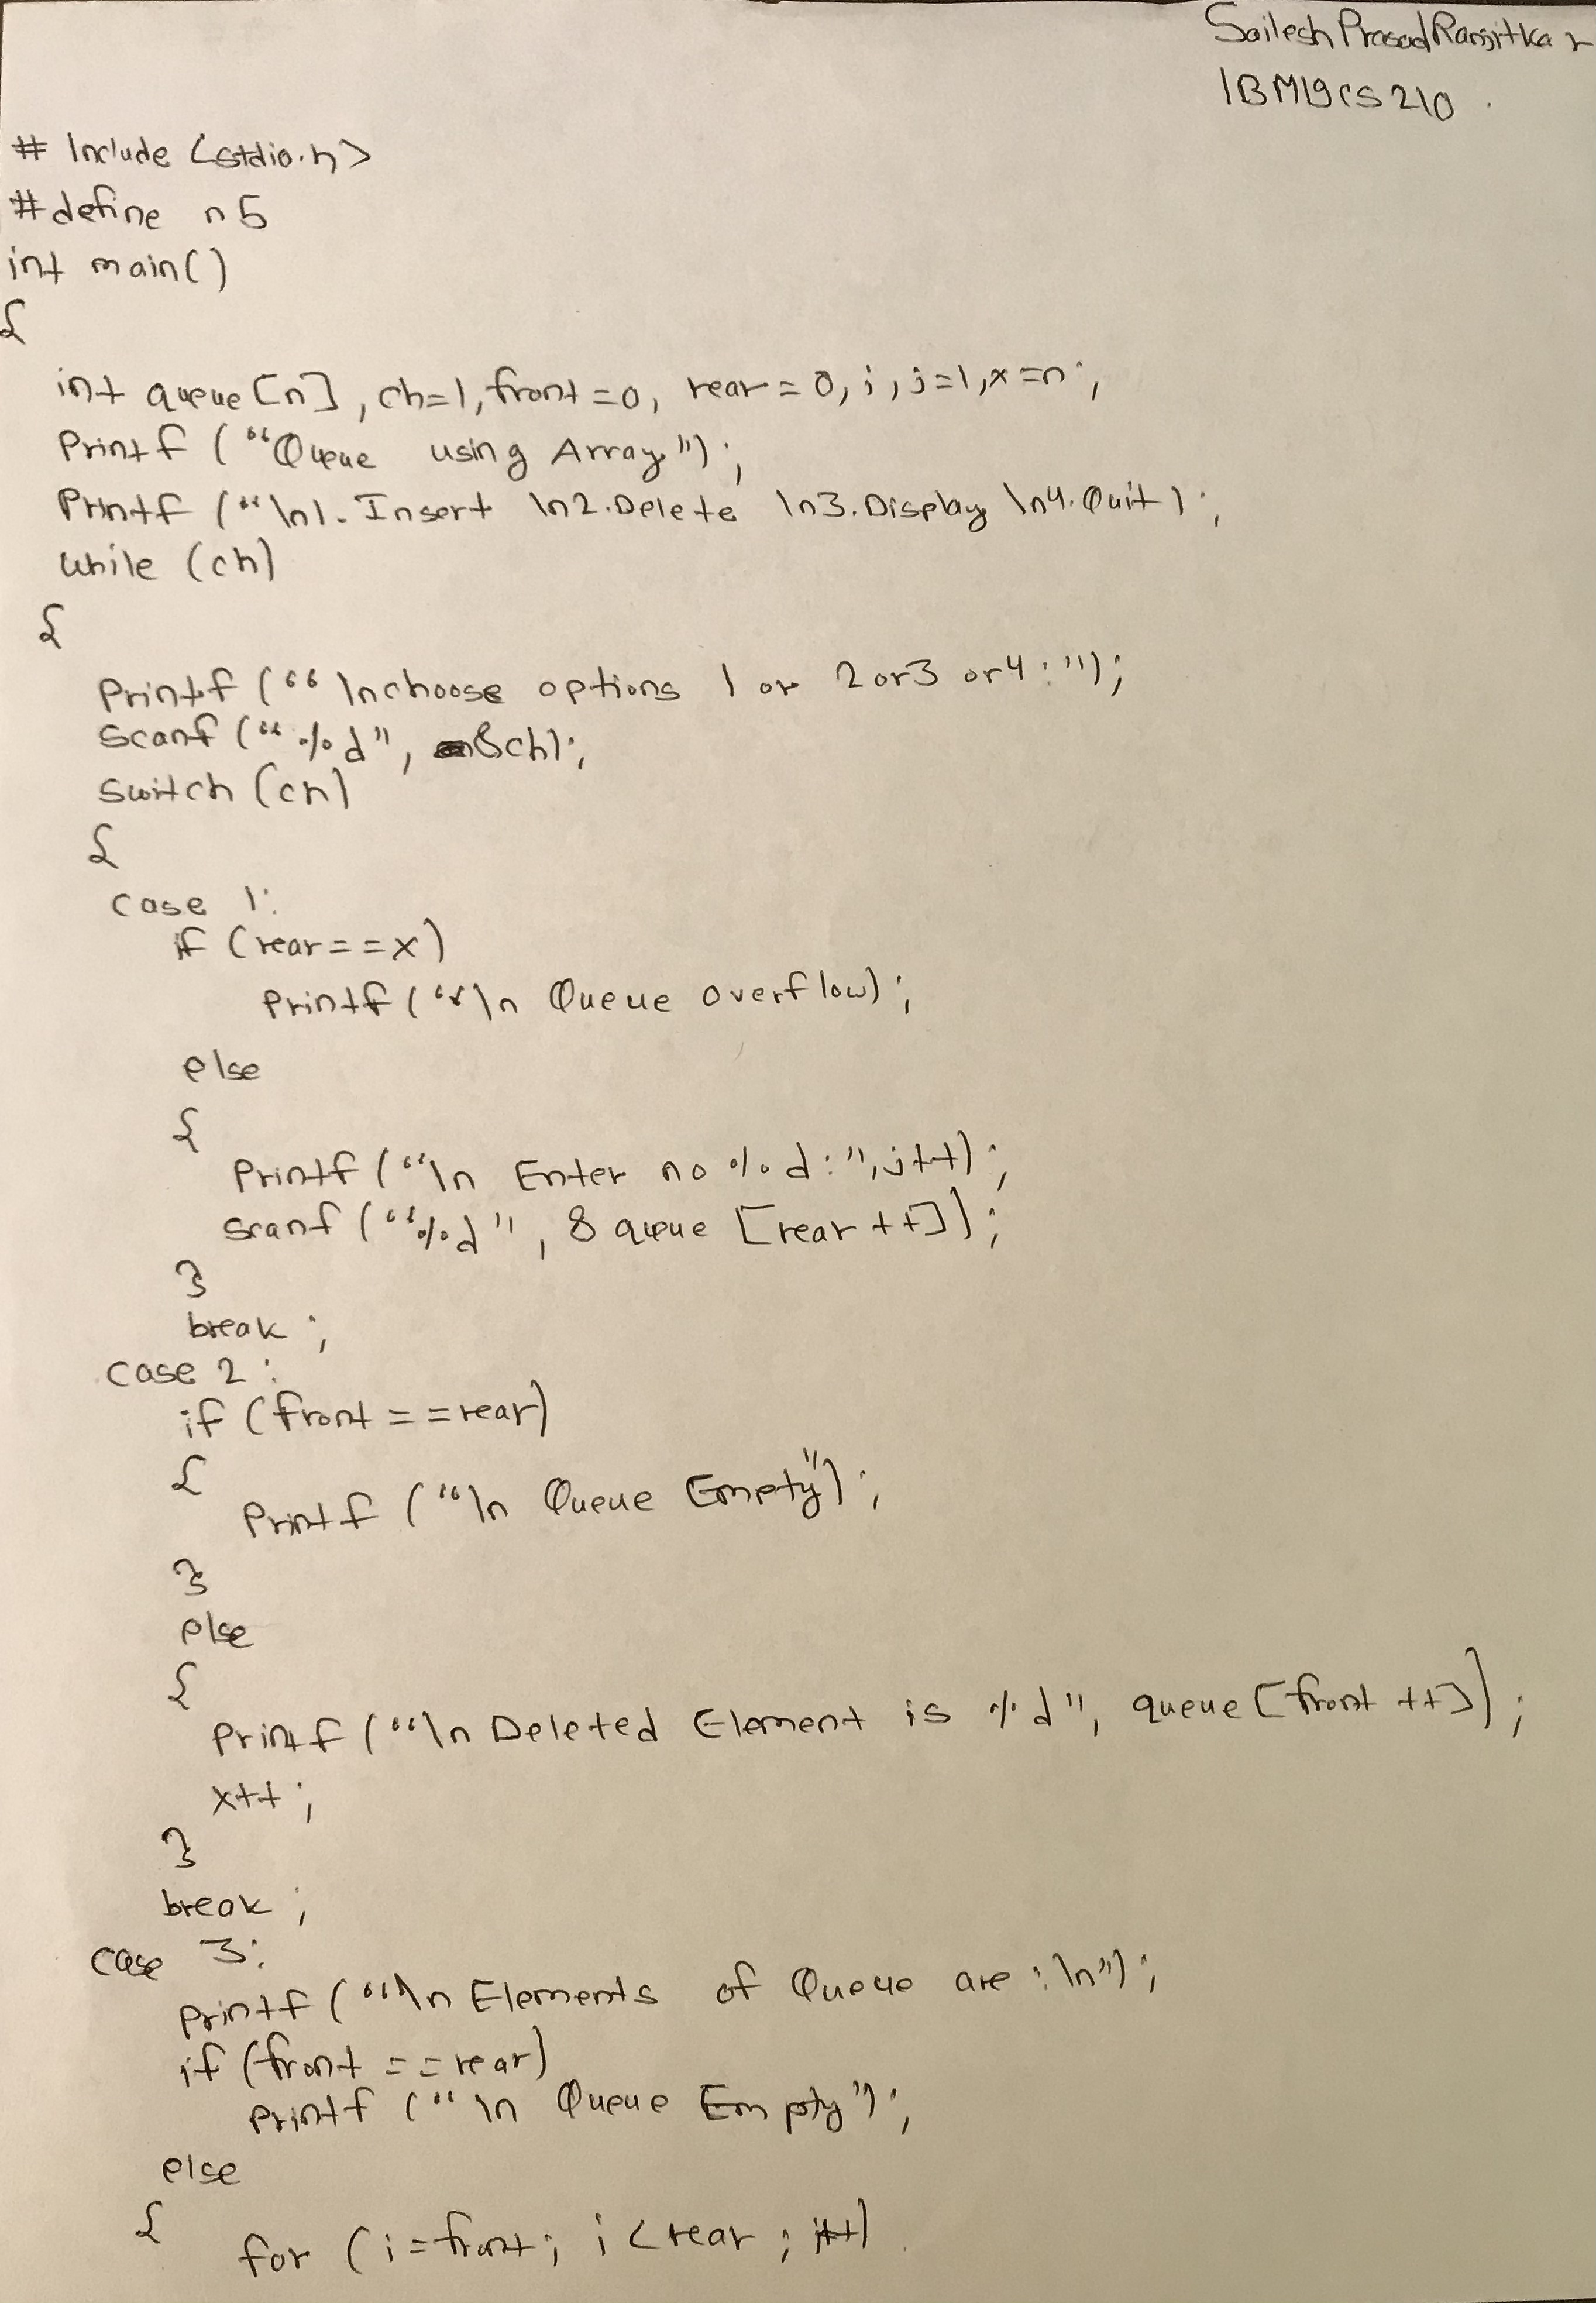 Sailesh Prasad Ranjitkar
1BM19CS210.
# Include <stdio.h>
#define n 5
int main()
{
int queue[n], ch=1, front=0, rear=0, i, j=1, x=n;
Printf ("Queue using Array");
Printf ("\n1. Insert \n2.Delete \n3.Display \n4.Quit);
while (ch)
{
Printf ("\nchoose options 1 or 2 or 3 or 4:");
Scanf ("%d", &ch);
Switch (ch)
{
case 1:
if (rear==x)
Printf ("\n Queue overflow);
else
{
Printf ("\n Enter no %d:", j++);
scanf ("%d", &queue [rear ++]);
}
break;
case 2:
if (front ==rear)
{
Printf ("\n Queue Empty");
}
else
{
Printf ("\n Deleted Element is %d", queue [front ++]);
x++;
}
break;
case 3:
Printf ("\n Elements of Queue are :\n");
if (front ==rear)
Printf ("\n Queue Empty");
else
{ for (i=front; i<rear; i++)